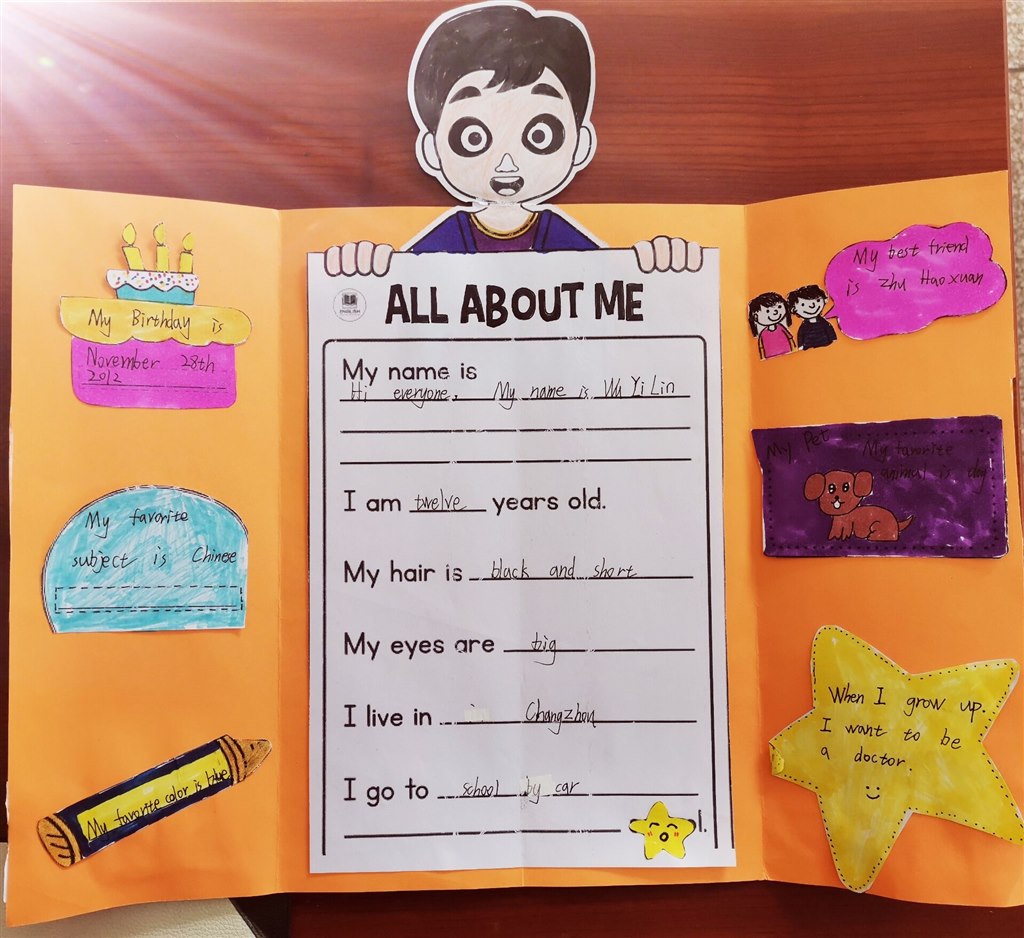 My Birthday is
November 28th
2012
My favorite
subject is Chinese
My favorite color is blue
ALL ABOUT ME
My name is
Hi everyone, My name is Wu Yi Lin
I am twelve years old.
My hair is black and short
My eyes are big
I live in in Changzhou
I go to school by car
l.
My best friend
is Zhu Haoxuan
My Pet My favorite
animal is dog
When I grow up.
I want to be
a doctor.